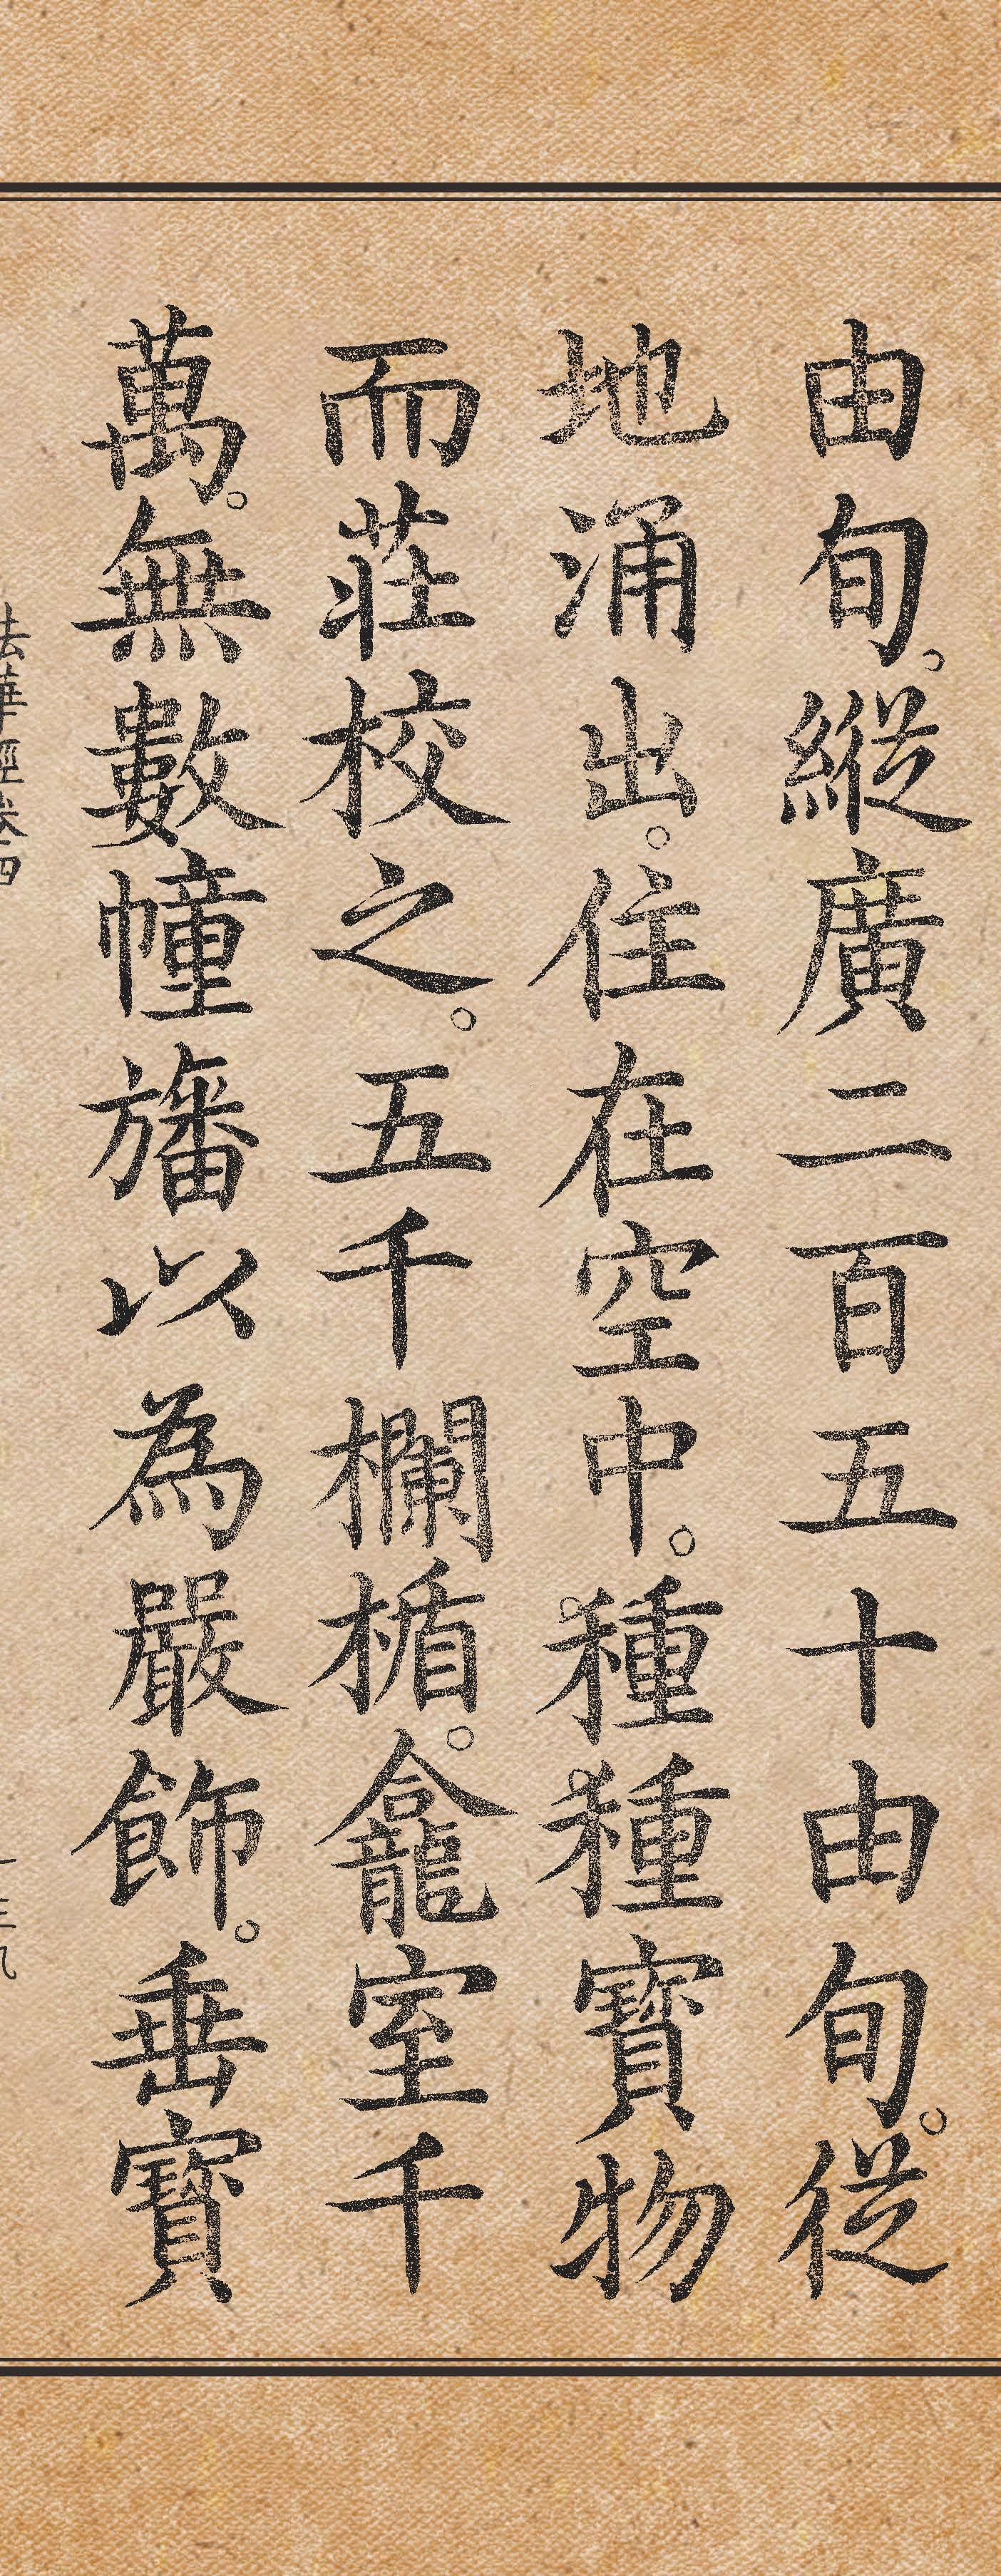 由旬。縱廣二百五十由旬。從
地涌出。住在空中。種種寶物
而莊校之。五千欄楯。龕室千
萬。無數幢旛以為嚴飾。垂寶
法華經卷四